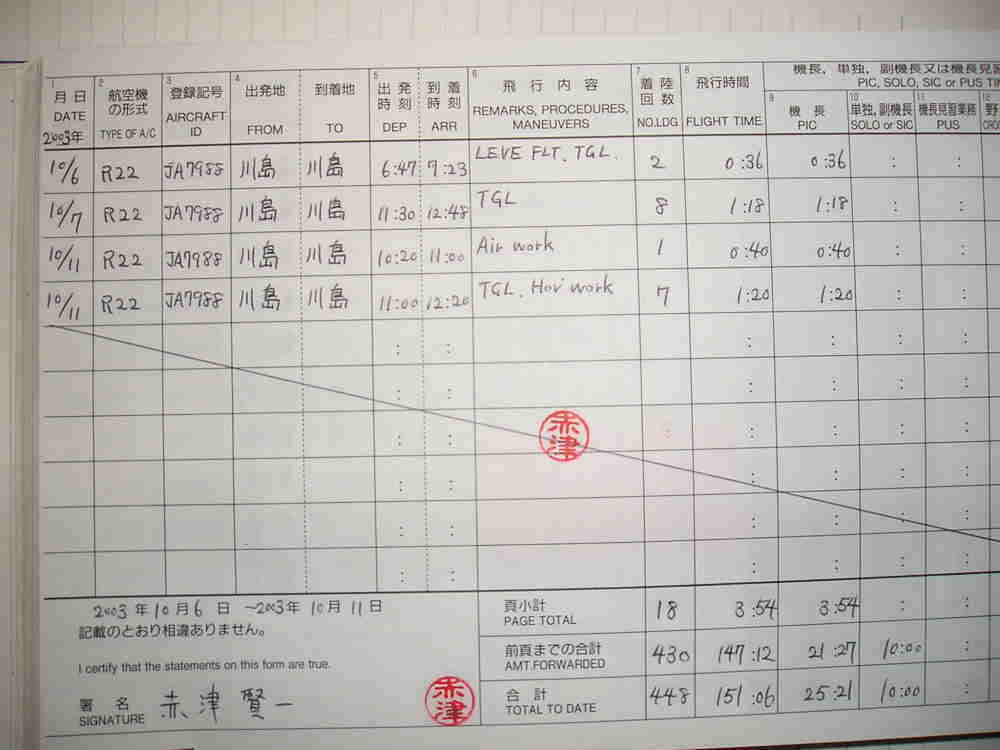 機長，単独，副機長又は機長見習
PIC, SOLO, SIC or PUS TIM
1 月日 DATE 2003年 2 航空機の形式 TYPE OF A/C 3 登録記号 AIRCRAFT ID 4 出発地 FROM 到着地 TO 5 出発時刻 DEP 到着時刻 ARR 6 飛行内容 REMARKS, PROCEDURES, MANEUVERS 7 着陸回数 NO.LDG 8 飛行時間 FLIGHT TIME 9 機長 PIC 10 単独，副機長 SOLO or SIC 11 機長見習業務 PUS 12 野 CRO
10/6 R22 JA7988 川島 川島 6:47 7:23 LEVE FLT. TGL. 2 0:36 0:36 : :
10/7 R22 JA7988 川島 川島 11:30 12:48 TGL 8 1:18 1:18 : :
10/11 R22 JA7988 川島 川島 10:20 11:00 Air work 1 0:40 0:40 : :
10/11 R22 JA7988 川島 川島 11:00 12:20 TGL. Hov' work 7 1:20 1:20 : :
: : : : : :
: : : : : :
赤津
: : : : : :
: : : : : :
: : : : : :
: : : : : :
2003年10月6日 ～2003年10月11日
記載のとおり相違ありません。
I certify that the statements on this form are true.
署名 SIGNATURE 赤津賢一 赤津
頁小計 PAGE TOTAL 18 3:54 3:54 : :
前頁までの合計 AMT.FORWARDED 430 147:12 21:27 10:00 :
合計 TOTAL TO DATE 448 151:06 25:21 10:00 :